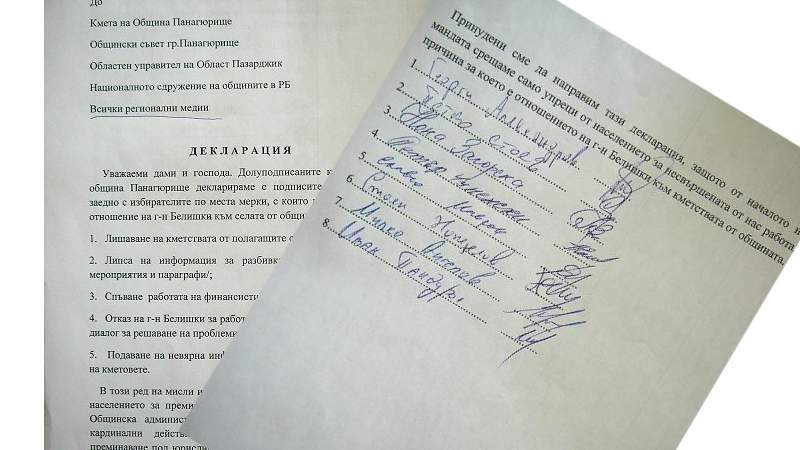 До
Кмета на Община Панагюрище
Общински съвет гр.Панагюрище
Областен управител на Област Пазарджик
Националното сдружение на общините в РБ
Всички регионални медии
ДЕКЛАРАЦИЯ
Уважаеми дами и господа. Долуподписаните к
община Панагюрище декларираме с подписите
заедно с избирателите по места мерки, с които
отношение на г-н Белишки към селата от общи
1. Лишаване на кметствата от полагащите с
2. Липса на информация за разбивк
мероприятия и параграфи/;
3. Спъване работата на финансисти
4. Отказ на г-н Белишки за работ
диалог за решаване на проблеми
5. Подаване на невярна инф
на кметовете.
В този ред на мисли и
населението за преми
Общинска админист
кардинални действ
преминаване под юрисди
Принудени сме да направим тази декларация, защото от началото н
мандата срещаме само упреци от населението за несвършената от нас работа
причина за което е отношението на г-н Белишки към кметствата от общината.
1. Георги Александров
2. Петко Стоев
3. Нона Загорска
4. Петър
5.
6. Стоян
7. Милко
8. Иван Пандуров